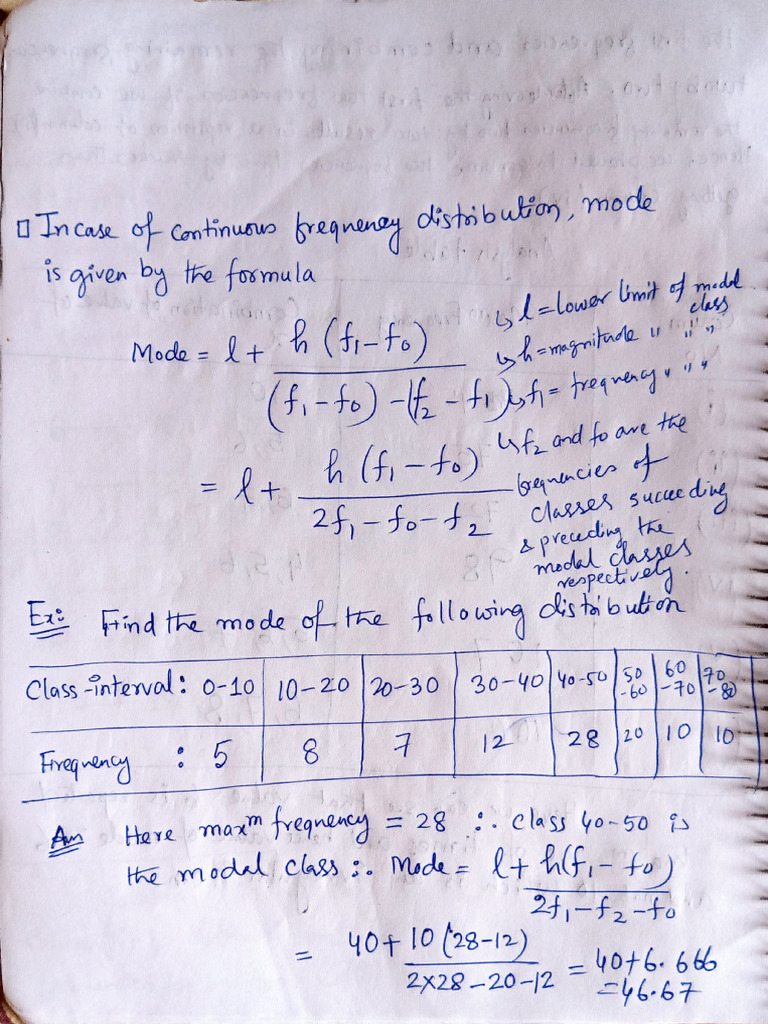 ▯ In case of continuous frequency distribution, mode
is given by the formula
Mode = l + h (f₁ - f₀) / (f₁ - f₀) - (f₂ - f₁)
= l + h (f₁ - f₀) / 2f₁ - f₀ - f₂
↳ l = lower limit of modal class
↳ h = magnitude " " "
↳ f₁ = frequency " " "
↳ f₂ and f₀ are the
frequencies of
classes succeeding
& preceding the
modal classes
respectively.
Ex: Find the mode of the following distribution
Class-interval: 0-10 | 10-20 | 20-30 | 30-40 | 40-50 | 50-60 | 60-70 | 70-80
Frequency : 5 | 8 | 7 | 12 | 28 | 20 | 10 | 10
Ans Here maxᵐ frequency = 28 ∴ class 40-50 is
the modal class ∴ Mode = l + h(f₁ - f₀) / 2f₁ - f₂ - f₀
= 40 + 10 (28-12) / 2×28-20-12 = 40+6.666
= 46.67